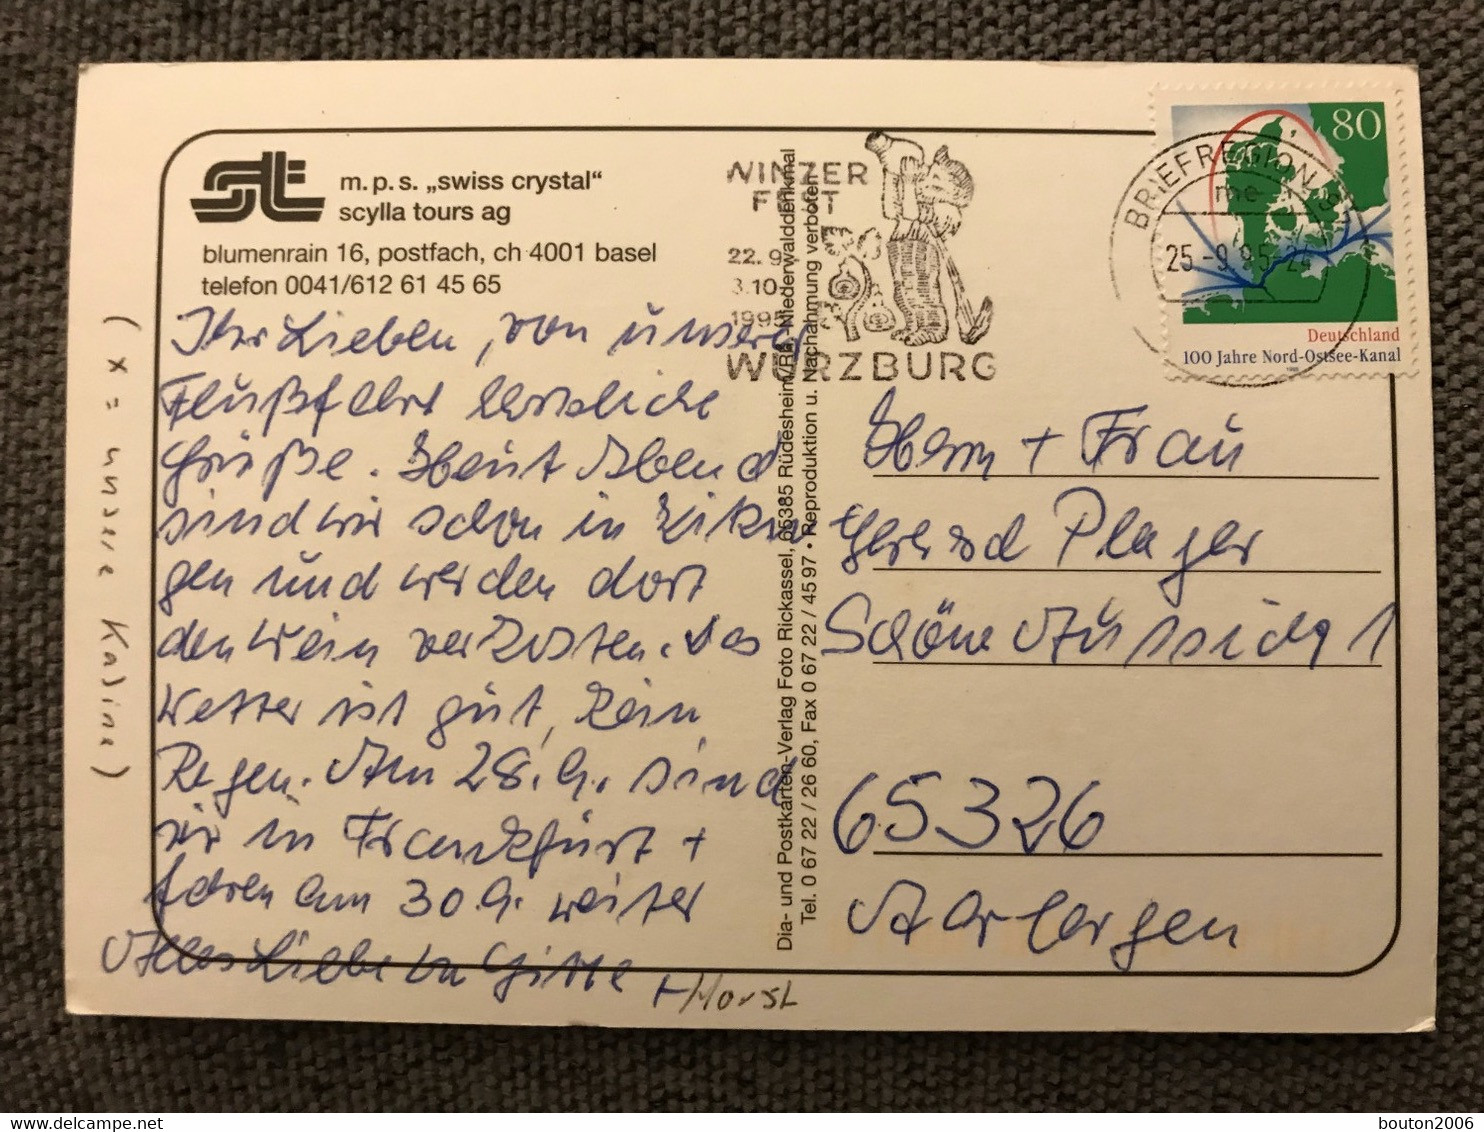 m.p.s. „swiss crystal“
scylla tours ag
blumenrain 16, postfach, ch 4001 basel
telefon 0041/612 61 45 65
(x = unsere Kabine)
Ihr Lieben, von unserer
Flußfahrt herzliche
Grüße. Heut Abend
sind wir schon in
gen und werden dort
den Wein verkosten. Das
Wetter ist gut, kein
Regen. Am 28.9. sind
wir in Frankfurt +
fahren am 30.9. weiter
Alles Liebe von Gitte + Horst
Dia- und Postkarten-Verlag Foto Rickassel, 65385 Rüdesheim/Rh.-Niederwalddenkmal
Tel. 0 67 22 / 26 60, Fax 0 67 22 / 45 97 • Reproduktion u. Nachahmung verboten
WINZER
FEST
22.9.
3.10.
1995
WÜRZBURG
BRIEFREGION
me
25.-9.95-24
80
Deutschland
100 Jahre Nord-Ostsee-Kanal
Herrn + Frau
Gerhard Plager
Schöne Aussicht 1
65326
Aarbergen
bouton2006